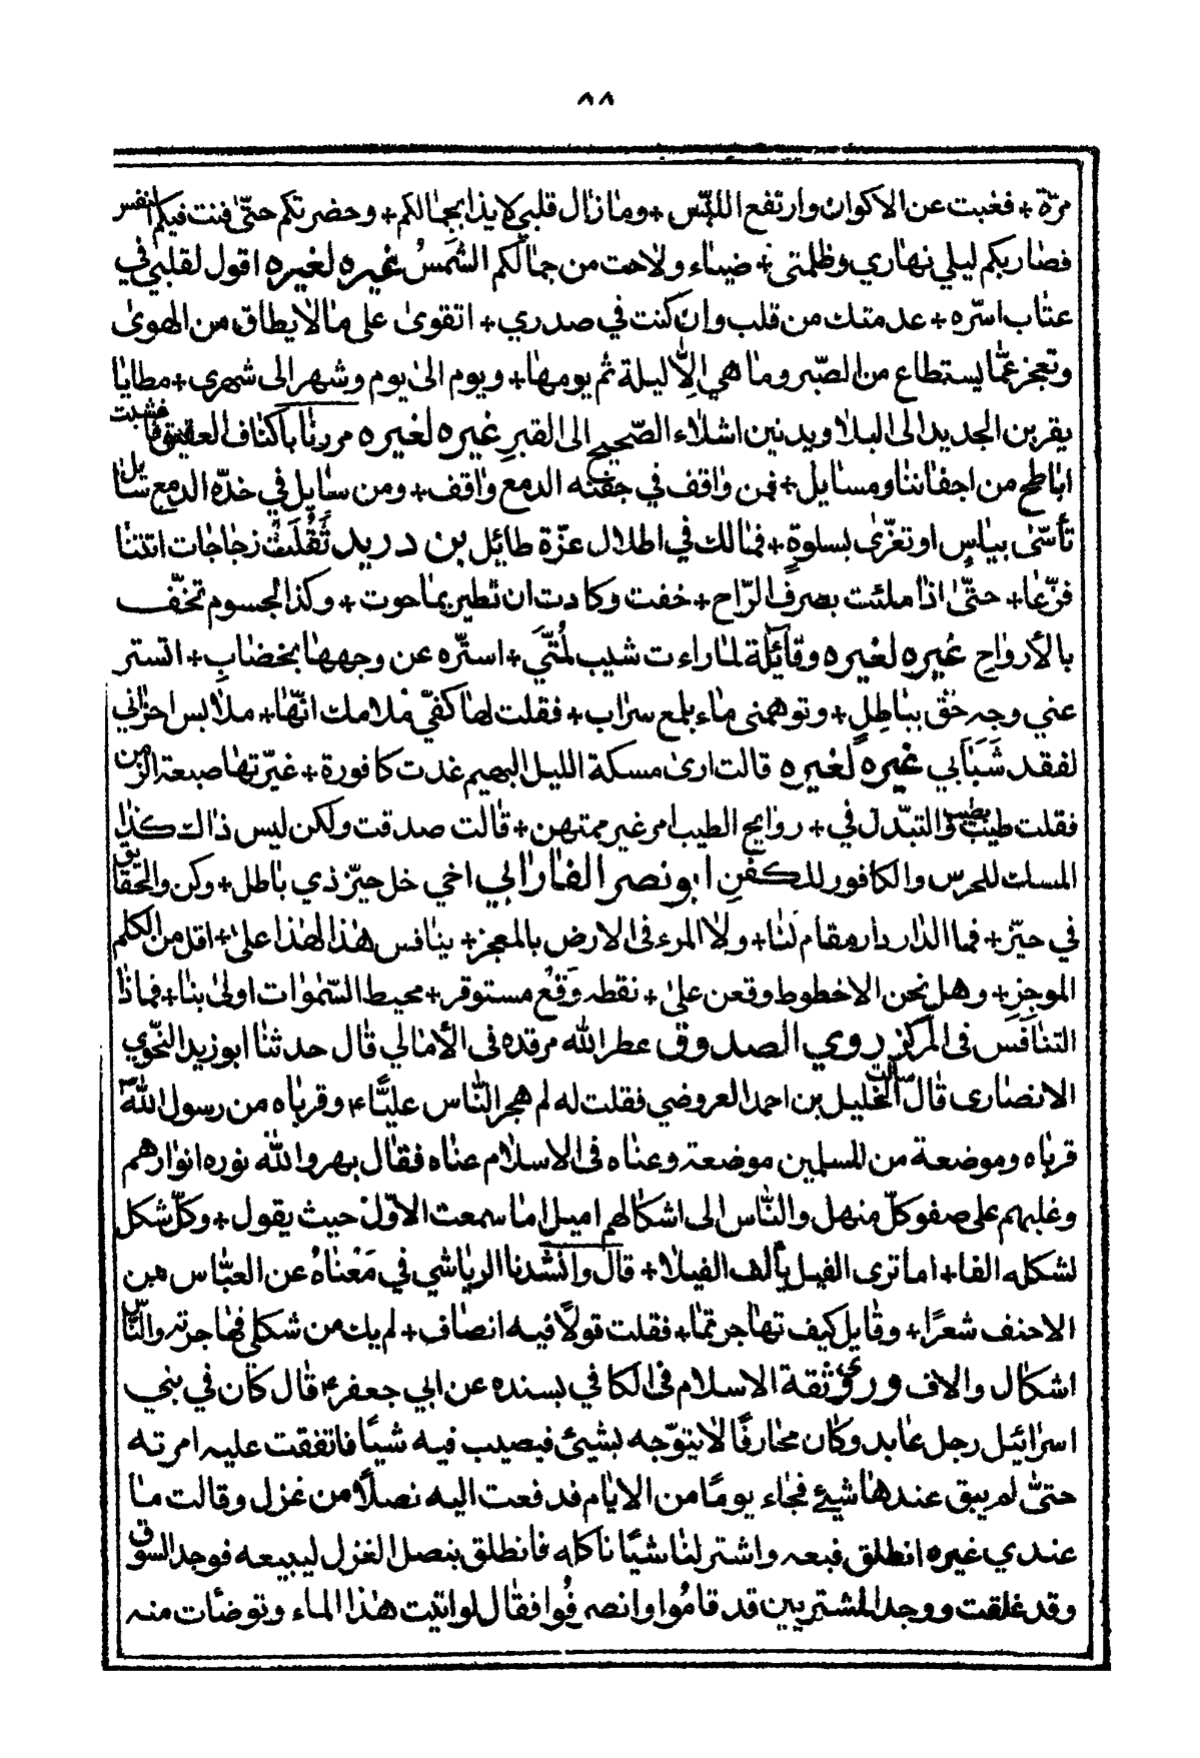 ٨٨
مرّة + فغبت عن الاكوان وارتفع اللبس + وما زال قلبي لايذا بجمالكم + وحضرتكم حتّى فنت فيكم انفس
فصار بكم ليلي نهاري وظلمتي + ضياء ولاحت من جمالكم الشمسُ غيره لغيره اقول لقلبي في
عتاب اسرّه + عدمتك من قلب وان كنت في صدري + اتقوى على ما لا يطاق من الهوى
وتعجز عمّا يستطاع من الصّبر وما هي الّا ليلة ثم يومها + ويوم الى يوم وشهر الى شهري + مطايا
يقربن الجديد الى البلا ويدنين اشلاء الصّحيح الى القبرِ غيره لغيره مررنا باكناف العقيق فاعشبت
اباطح من اجفاننا ومسايل + فمن واقف في جفنه الدمع واقف + ومن سايل في خدّه الدمع سايل
تأسّى بياسٍ او تعزّى بسلوةٍ + فمالك في اطلال عزّة طائل بن دريد ثَقُلَتْ زجاجات اتتنا
فرّغا + حتّى اذا ملئت بصرف الرّاح + خفت وكادت ان تطير بما حوت + وكذا لجسوم تخفّ
بالأرواح غيره لغيره وقائلة لما راءت شيب لمّتي + استّره عن وجهها بخضاب + اتستر
عني وجه حقّ بباطلٍ + وتوهمني ماء بلمع سراب + فقلت لها كفّي ملامك انّها + ملابس احزاني
لفقد شَبَابي غيره لغيره قالت ارى مسكة الليل البهيم غدت كافورة + غيّرتها صبعة الزمن
فقلت طيب بطيب والتبدّل في + روايح الطيب امر غير ممتهن + قالت صدقت ولكن ليس ذاك كذا
المسك للعرس والكافور للكفنِ ابو نصر الفارابي اخي خل حيّز ذي باطل + وكن والحقايق
في حيّز + فما الدار دار مقام لنا + ولا المرء فى الارض بالمعجز + ينافس هذا لهذا على + اقل من الكلم
الموجز + وهل نحن الا خطوط وقعن على + نقطه وَقْعُ مستوقر + محيط السّموات اولى بنا + فماذا
التنافس فى المركز روي الصدوق عطر الله مرقده فى الأمالي قال حدثنا ابو زيد النحّوي
الانصارى قال سالت الخليل بن احمد العروضي فقلت له لم هجر النّاس عليّاء وقرباه من رسول اللهّ
قرباه وموضعة من المسلمين موضعة وعناه فى الاسلام عناه فقال بهر والله نوره انوارهم
وغلبهم على صفو كلّ منهل والنّاس الى اشكالهم اميل اما سمعت الاوّل حيث يقول + وكلّ شكل
لشكله الفا + اما ترى الفيل يألف الفيلا + قال وانشدنا الرياشي في مَعْناهُ عن العبّاس بن
الاحنف شعرًا + وقايل كيف تهاجرتما + فقلت قولًا فيه انصاف + لم يك من شكلي فهاجرته والنّاس
اشكال والاف وروي ثقة الاسلام فى الكافي بسنده عن ابي جعفر ع قال كان في بني
اسرائيل رجل عابد وكان محارفًا لا يتوّجه بشيئ فيصيب فيه شيئًا فاتفقت عليه امرته
حتىّ لم يبق عندها شيئ فجاء يومًا من الايام فدفعت اليه نصلًا من غزل وقالت ما
عندي غيره انطلق فبعه واشتر لنا شيًا ناكله فانطلق بنصل الغزل ليبيعه فوجد السوق
وقد غلقت ووجد المشتريين قد قاموا وانصرفوا فقال لو اتيت هذا الماء وتوضات منه